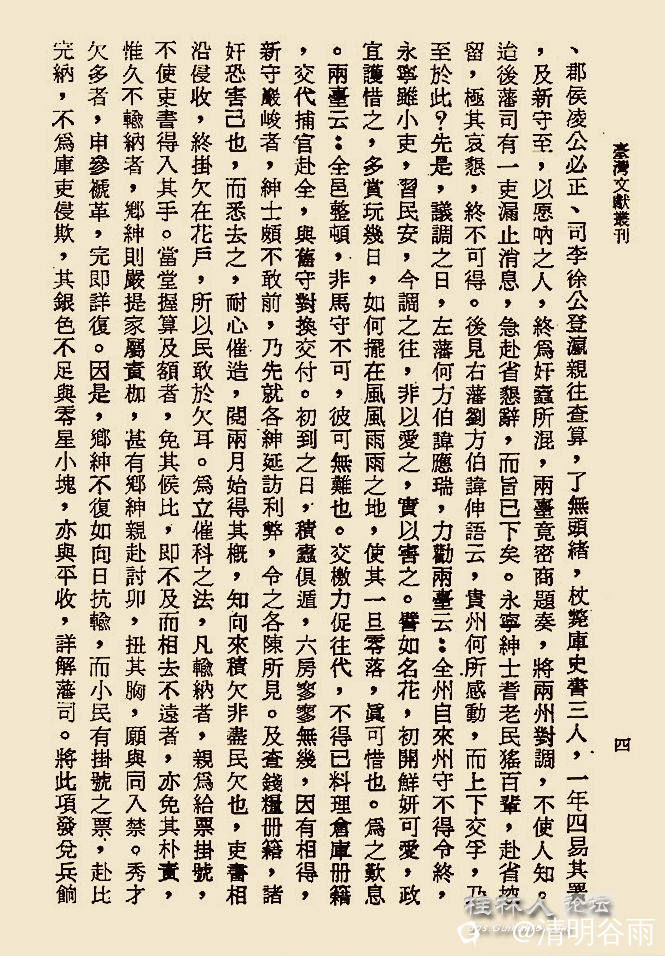 臺灣文獻叢刊
四
、郡侯凌公必正、司李徐公登瀛親往查算,了無頭緒,杖斃庫史書三人,一年四易其署
,及新守至,以愿吶之人,終爲奸蠹所混,兩臺竟密商題奏,將兩州對調,不使人知。
迨後藩司有一吏漏止消息,急赴省懇辭,而旨已下矣。永寧紳士耆老民猺百輩,赴省控
留,極其哀懇,終不可得。後見右藩劉方伯諱伸語云,貴州何所感動,而上下交孚,乃
至於此?先是,議調之日,左藩何方伯諱應瑞,力勸兩臺云:全州自來州守不得令終,
永寧雖小吏,習民安,今調之往,非以愛之,實以害之。譬如名花,初開鮮妍可愛,政
宜護惜之,多賞玩幾日,如何擺在風風雨雨之地,使其一旦零落,眞可惜也。爲之歎息
。兩臺云:全邑整頓,非馬守不可,彼可無難也。交檄力促往代,不得已料理倉庫册籍
,交代捕官赴全,與舊守對換交付。初到之日,積蠹俱遁,六房寥寥無幾,因有相得,
新守嚴峻者,紳士頗不敢前,乃先就各紳延訪利弊,令之各陳所見。及查錢糧册籍,諸
奸恐害己也,而悉去之,耐心催造,閱兩月始得其概,知向來積欠非盡民欠也,吏書相
沿侵收,終掛欠在花戶,所以民敢於欠耳。爲立催科之法,凡輸納者,親爲給票掛號,
不使吏書得入其手。當堂握算及額者,免其候比,即不及而相去不遠者,亦免其朴責,
惟久不輸納者,鄉紳則嚴提家屬責枷,甚有鄉紳親赴討卯,扭其胸,願與同入禁。秀才
欠多者,申參褫革,完即詳復。因是,鄉紳不復如向日抗輸,而小民有掛號之票,赴比
完納,不爲庫吏侵欺,其銀色不足與零星小塊,亦與平收,詳解藩司。將此項發兌兵餉
桂林人论坛
@清明谷雨